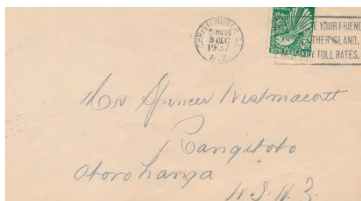 CHRISTCHURCH
1937
N.Z.
YOUR FRIEND
THER ISLAND.
TOLL RATES.
NEW ZEALAND
Mr Spencer Westmacott
Rangitoto
Otorohanga
N.I. N.Z.